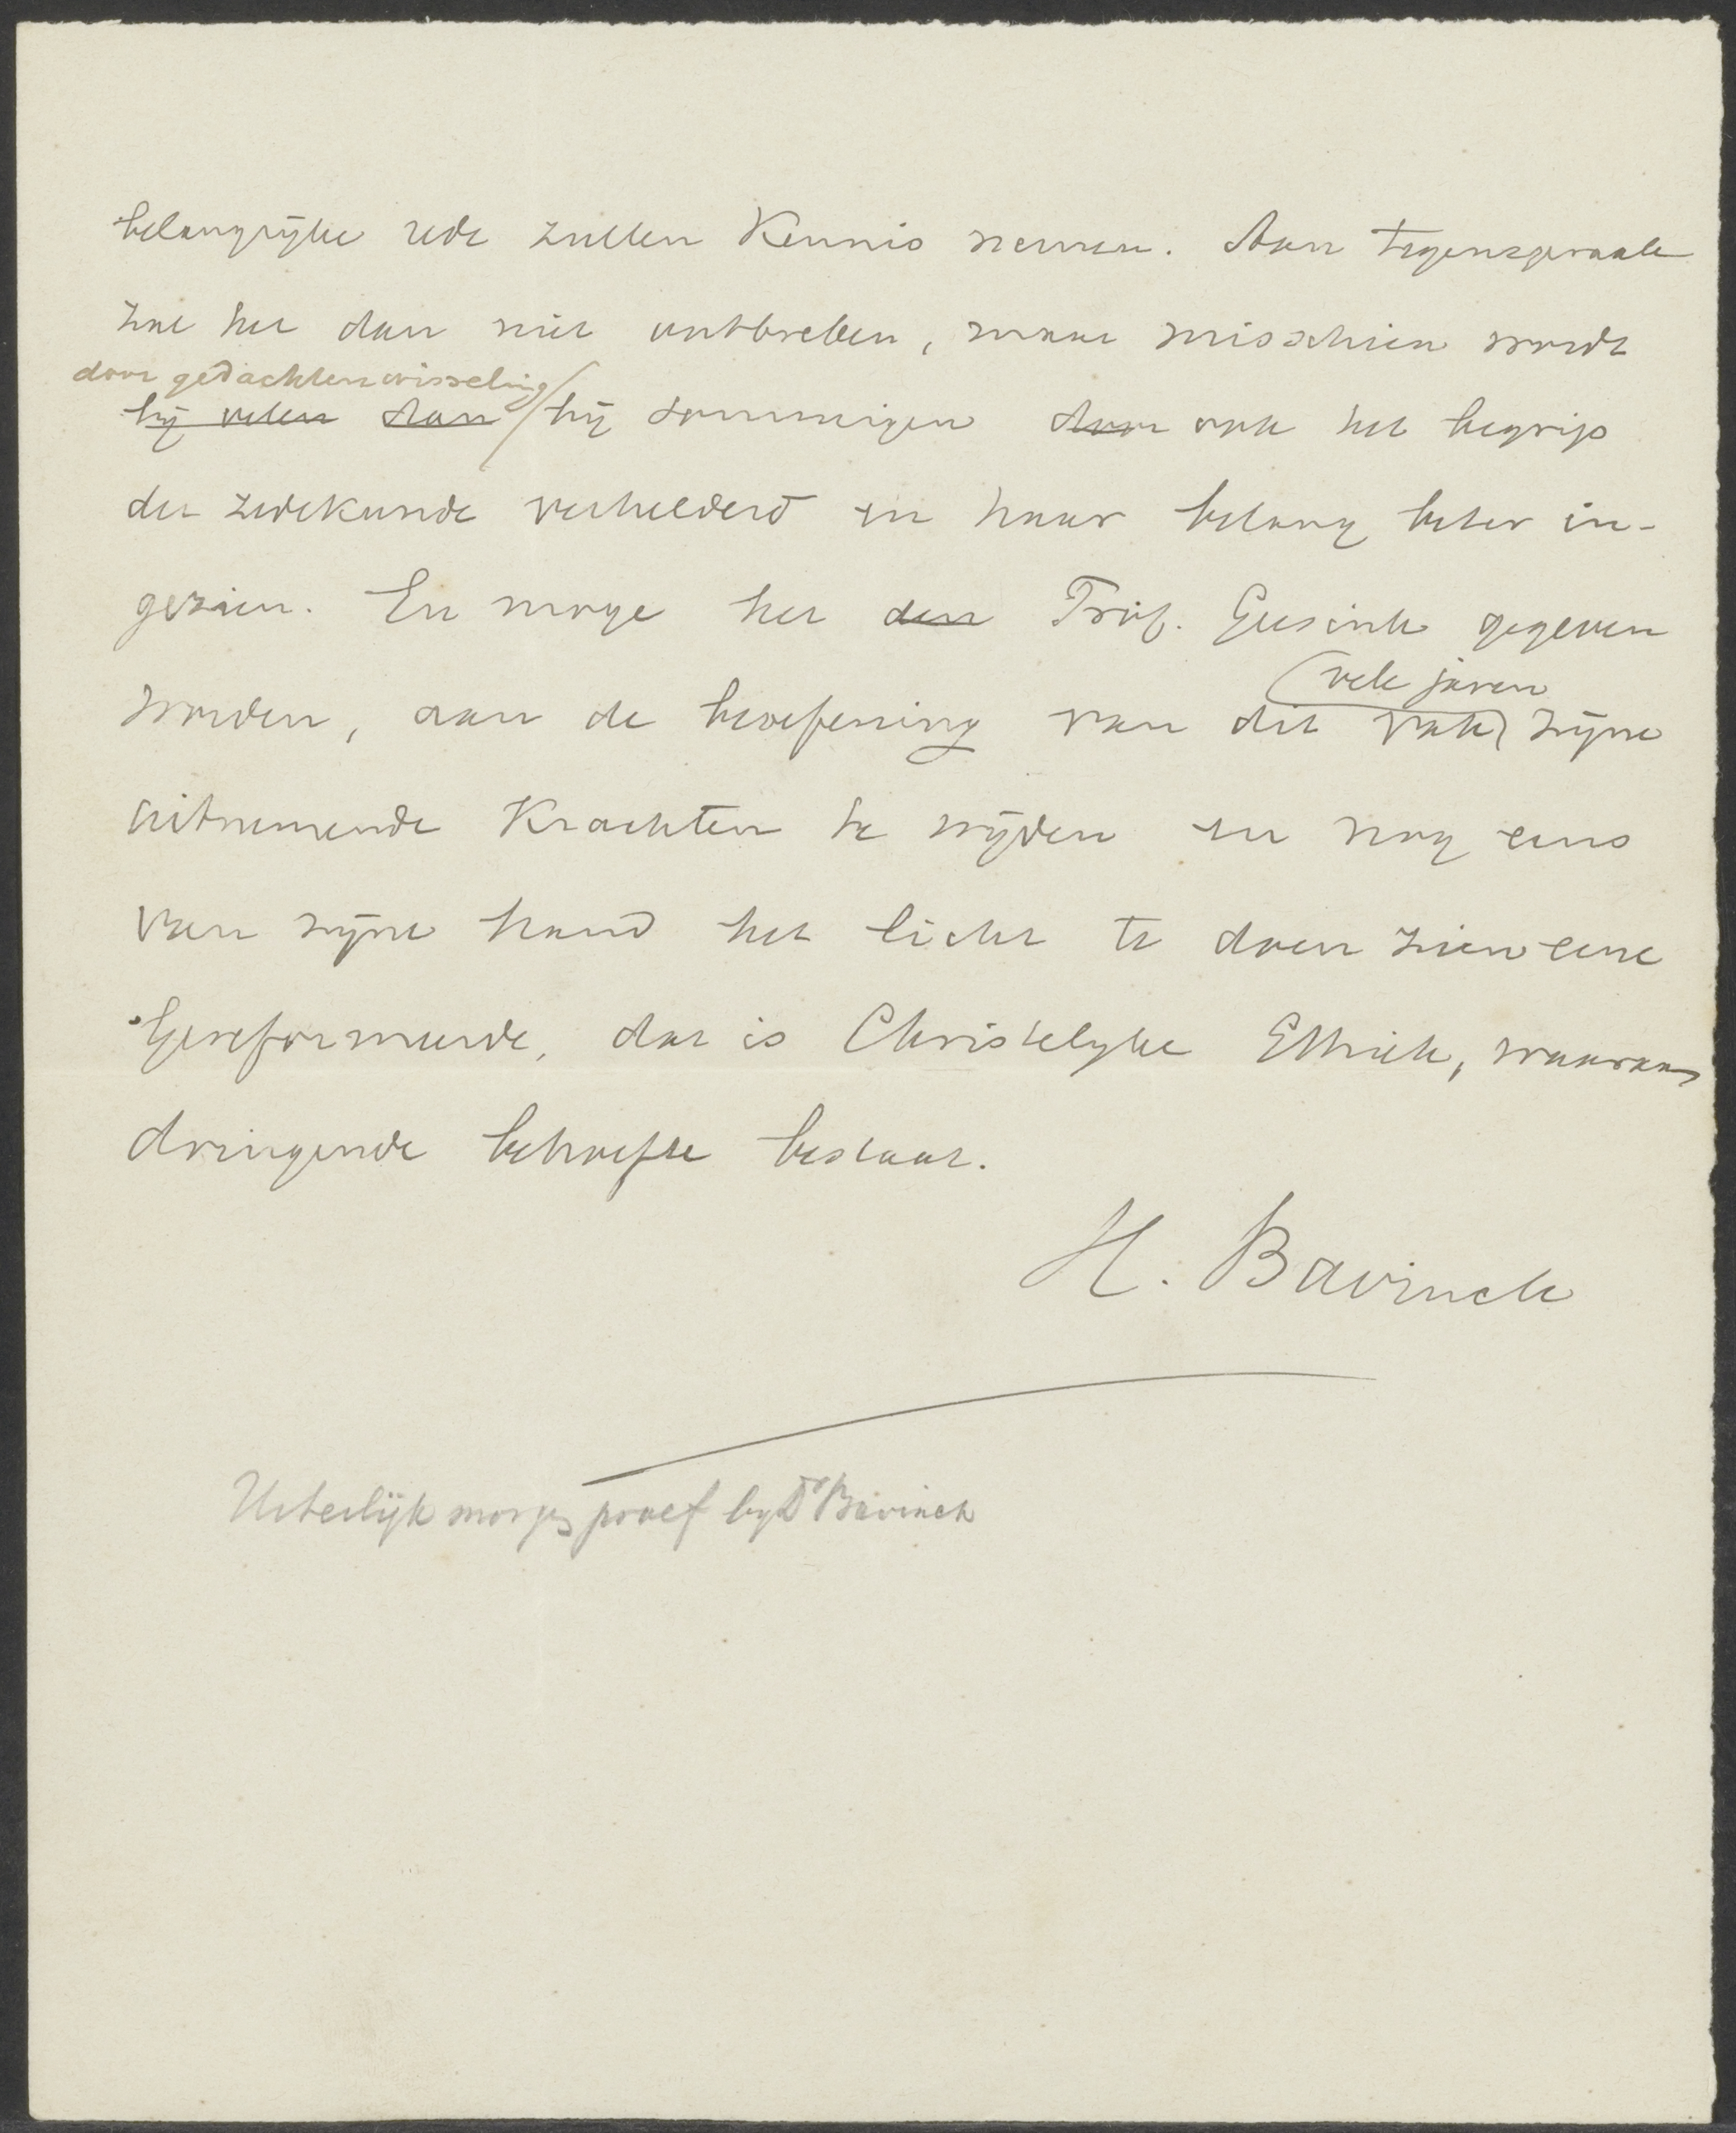 belangrijke rede zullen kennis nemen. Aan tegenspraak
zal het dan niet ontbreken, maar misschien wordt
door gedachtenwisseling
bij velen dan bij sommigen dan ook het begrip
der zedekunde verhelderd en haar belang beter in-
gezien. En moge het den Prof. Geesink gegeven
vele jaren
worden, aan de beoefening van dit vak zijne
uitnemende krachten te wijden en nog eens
van zijne hand het licht te doen zien eene
Gereformeerde, dat is Christelijke Ethiek, waaraan
dringende behoefte bestaat.
H. Bavinck
Uiterlijk morgen proef bij Dr Bavinck